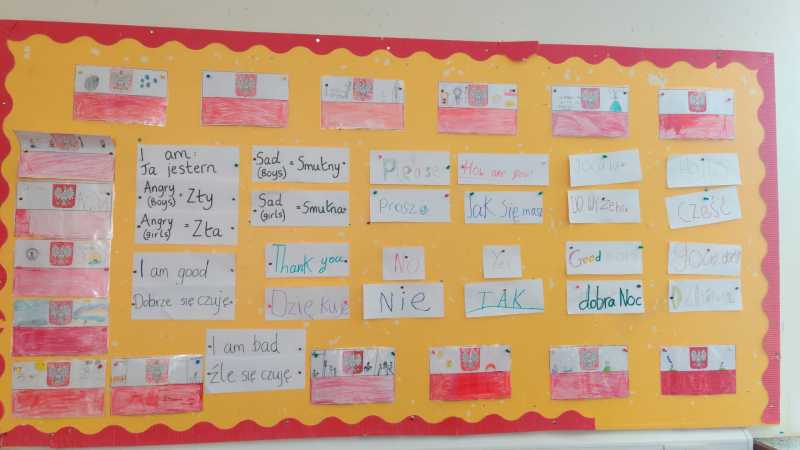 I am:
Ja jestem
Angry
(Boys) = Zły
Angry
(girls) = Zła
Sad
(Boys) = Smutny
Sad
(girls) = Smutna
Please
Proszę
How are you?
Jak się masz
DO
CZEŚĆ
I am good
Dobrze się czuję
Thank you
Dziękuję
No
NIE
Yes
TAK
Good
dobra Noc
Good
I am bad
Źle się czuję